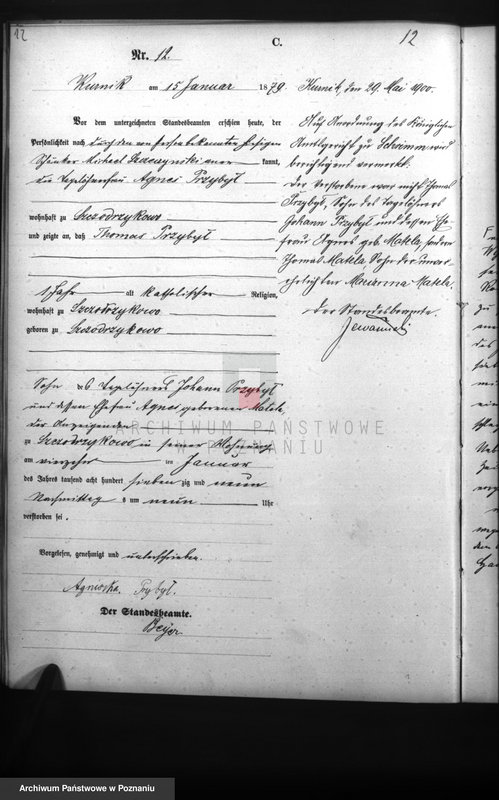 12
C.
12
Nr. 12.
Kurnik am 15 Januar 1879
Vor dem unterzeichneten Standesbeamten erschien heute, der
Persönlichkeit nach durch den von Person bekannten hiesigen
Schänker Michael Szczeszynski aner- kannt,
die Tagelöhnerfrau Agnes Przybył
wohnhaft zu Szczodrzykowo
und zeigte an, daß Thomas Przybył
1 Jahr alt katholischer Religion,
wohnhaft zu Szczodrzykowo
geboren zu Szczodrzykowo
Sohn des Tagelöhners Johann Przybył
und dessen Ehefrau Agnes geborenen Matela,
der Anzeigenden
zu Szczodrzykowo in seiner Wohnung
am vierzehnten Januar
des Jahres tausend acht hundert siebenzig und neun
Nachmittag s um neun Uhr
verstorben sei.
Vorgelesen, genehmigt und unterschrieben.
Agnieszka Przybył.
Der Standesbeamte.
Beyer
Kurnik, den 29. Mai 1900.
Auf Anordnung des Königlichen
Amtsgericht zu Schrimm wird
berichtigend vermerkt:
Der Verstorbene war nicht Thomas
Przybył, Sohn des Tagelöhners
Johann Przybył und dessen Ehe-
frau Agnes geb. Matela, sondern
Thomas Matela Sohn der unver-
ehelichten Marianna Matela.
Der Standesbeamte.
ARCHIWUM PAŃSTWOWE
W POZNANIU
Archiwum Państwowe w Poznaniu